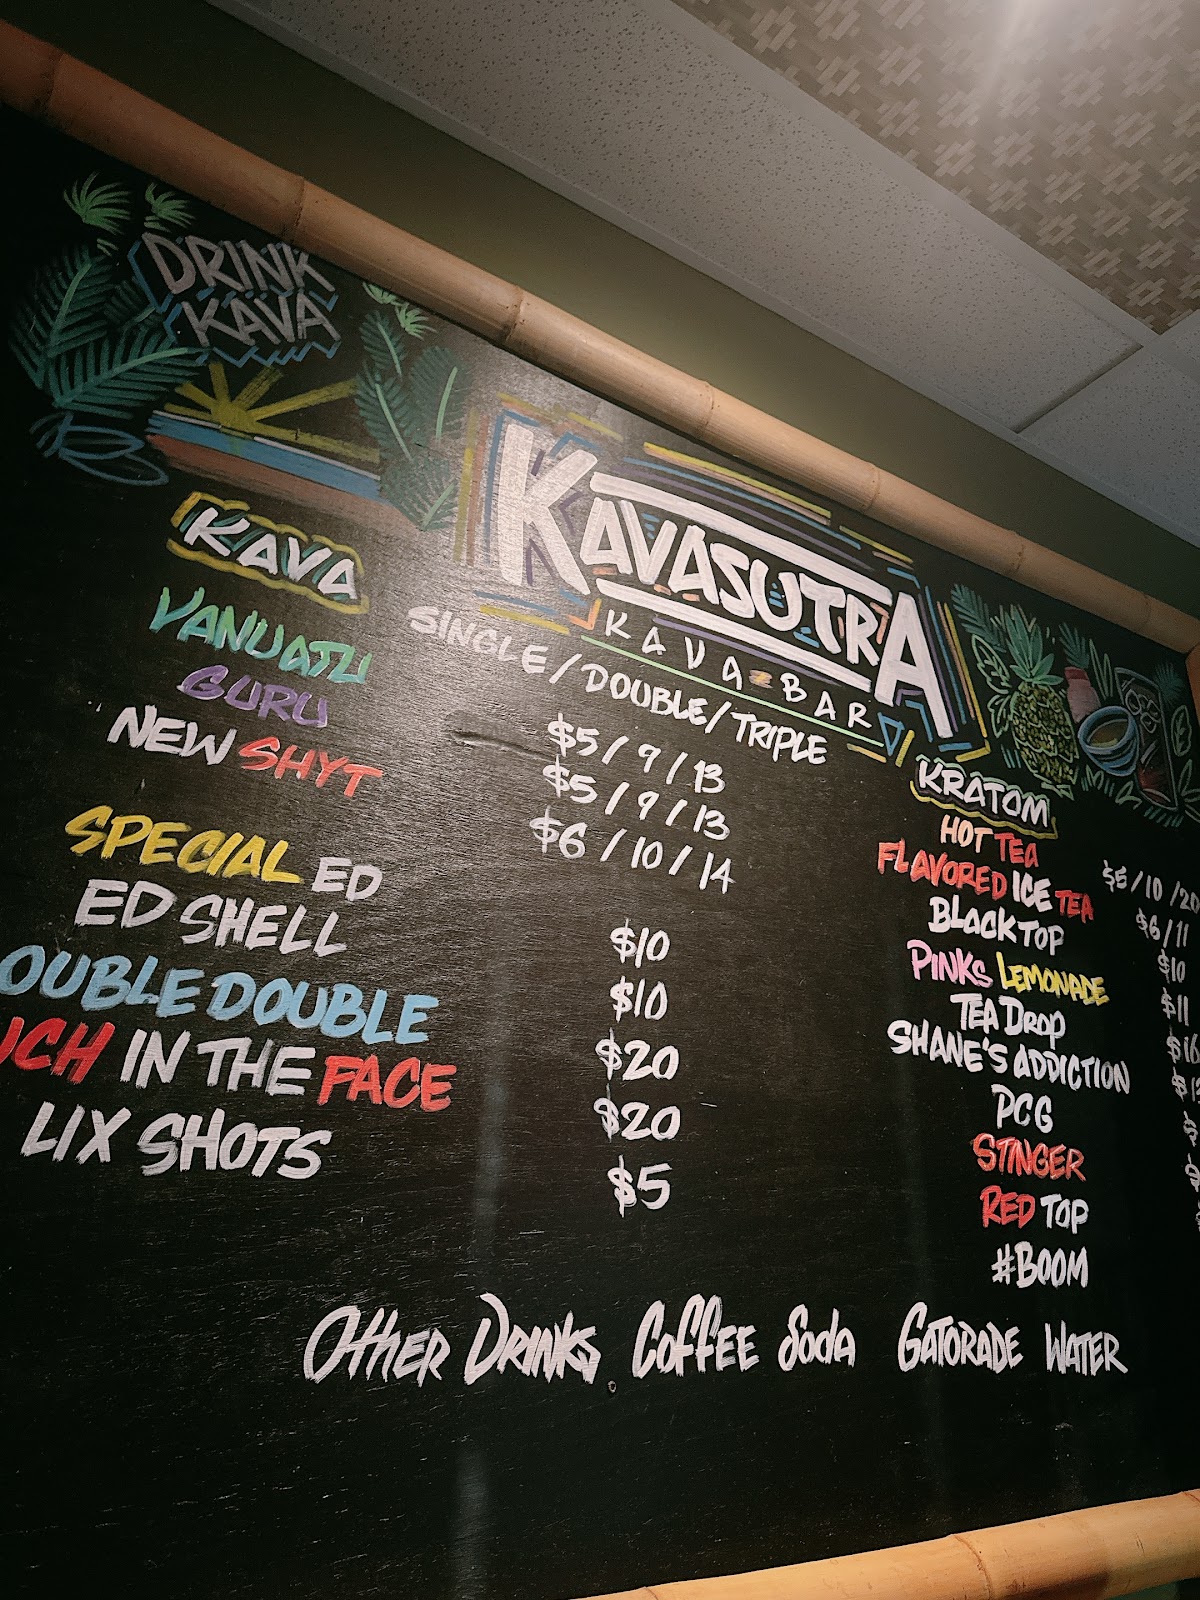 DRINK
KAVA
KAVASUTRA
KAVA BAR
KAVA
SINGLE / DOUBLE / TRIPLE
VANUATU $5 / 9 / 13
GURU $5 / 9 / 13
NEW SHYT $6 / 10 / 14
SPECIAL ED $10
ED SHELL $10
OUBLE DOUBLE $20
IN THE FACE $20
LIX SHOTS $5
KRATOM
HOT TEA $5 / 10 / 20
FLAVORED ICE TEA $6 / 11
BLACK TOP $10
PINKS LEMONADE $11
TEA DROP
SHANE'S ADDICTION
PCG
STINGER
RED TOP
#BOOM
OTHER DRINKS COFFEE SODA GATORADE WATER